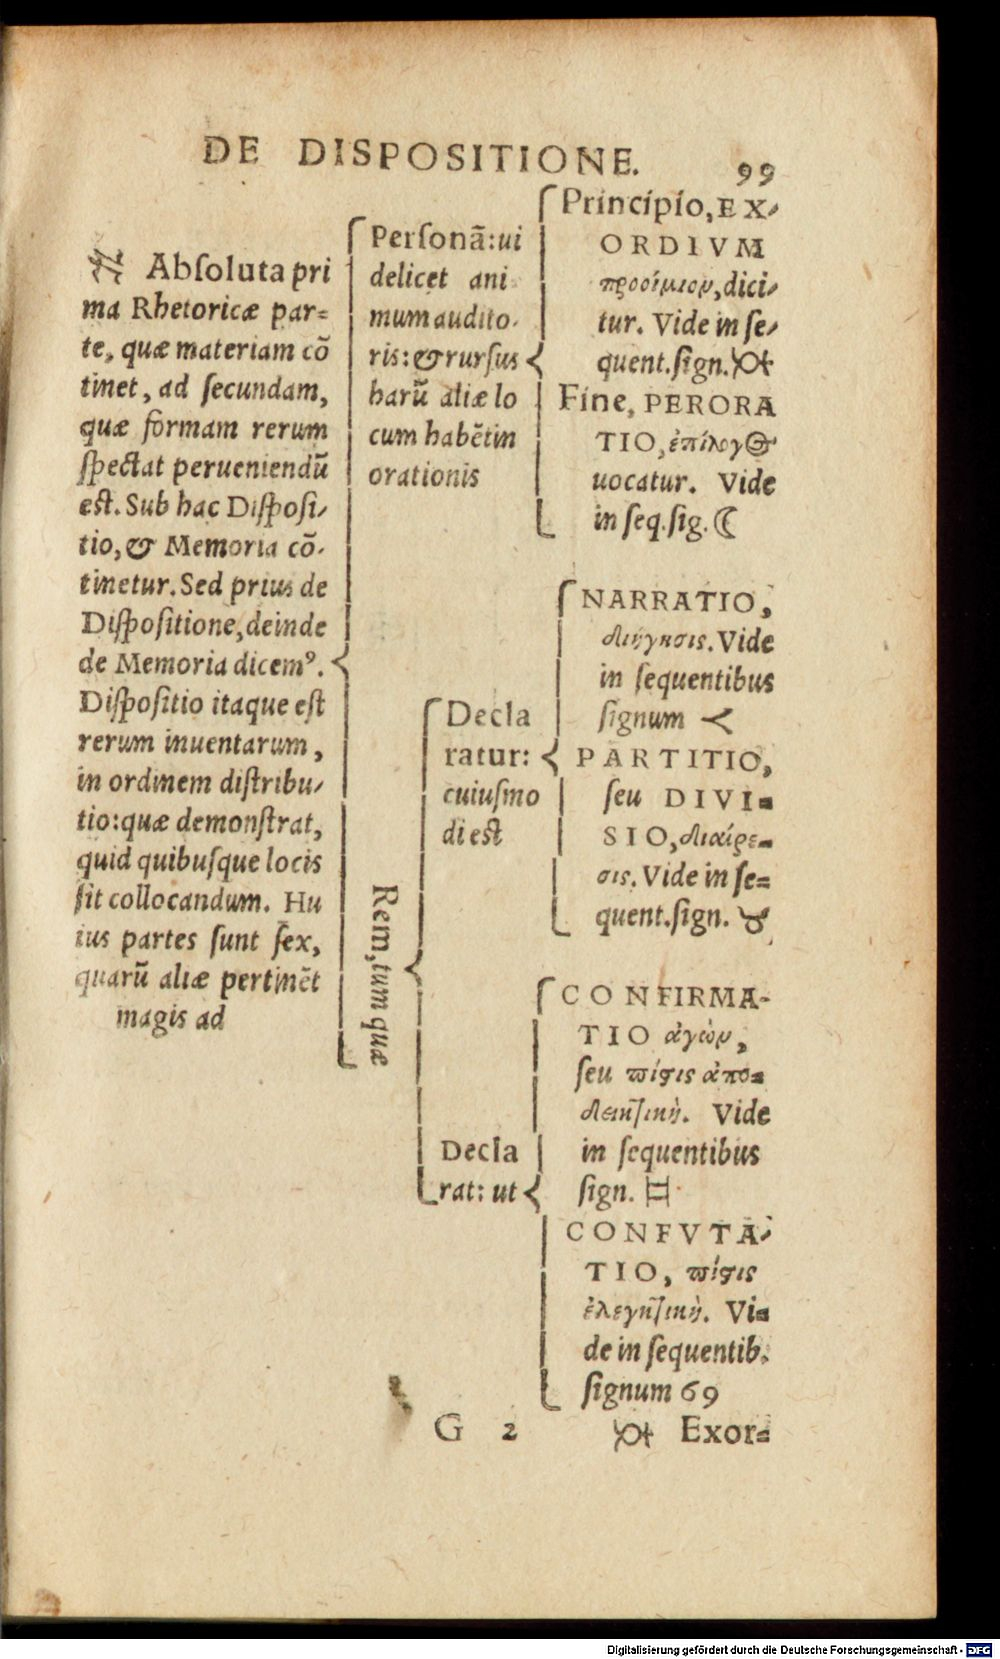 DE DISPOSITIONE.
99
Abſoluta pri
ma Rhetoricæ par=
te, quæ materiam cō
tinet, ad ſecundam,
quæ formam rerum
ſpectat perueniendū
eſt. Sub hac Diſpoſi-
tio, & Memoria cō-
tinetur. Sed prius de
Diſpoſitione, deinde
de Memoria dicemꝰ.
Diſpoſitio itaque eſt
rerum inuentarum,
in ordinem diſtribu-
tio: quæ demonſtrat,
quid quibuſque locis
ſit collocandum. Hu
ius partes ſunt ſex,
quarū aliæ pertinēt
magis ad
Perſonā: ui
delicet ani
mum audito-
ris: & rurſus
harū aliæ lo
cum habēt in
orationis
Principio, EX-
ORDIVM
προοίμιον, dici-
tur. Vide in ſe-
quent. ſign.
Fine, PERORA
TIO, ἐπίλογος
uocatur. Vide
in ſeq. ſig. ☾
Rem, tum quæ
Decla
ratur:
cuiuſmo
di eſt
NARRATIO,
διήγησις. Vide
in ſequentibus
ſignum
PARTITIO,
ſeu DIVI=
SIO, διαίρε=
σις. Vide in ſe=
quent. ſign. ♉
Decla
rat: ut
CONFIRMA-
TIO ἀγὼν,
ſeu πίϛις ἀπο=
δεικτικὴ. Vide
in ſequentibus
ſign. ♊
CONFVTA-
TIO, πίϛις
ἐλεγκτικὴ. Vi=
de in ſequentib.
ſignum 69
G 2
Exor=
Digitalisierung gefördert durch die Deutsche Forschungsgemeinschaft - DFG